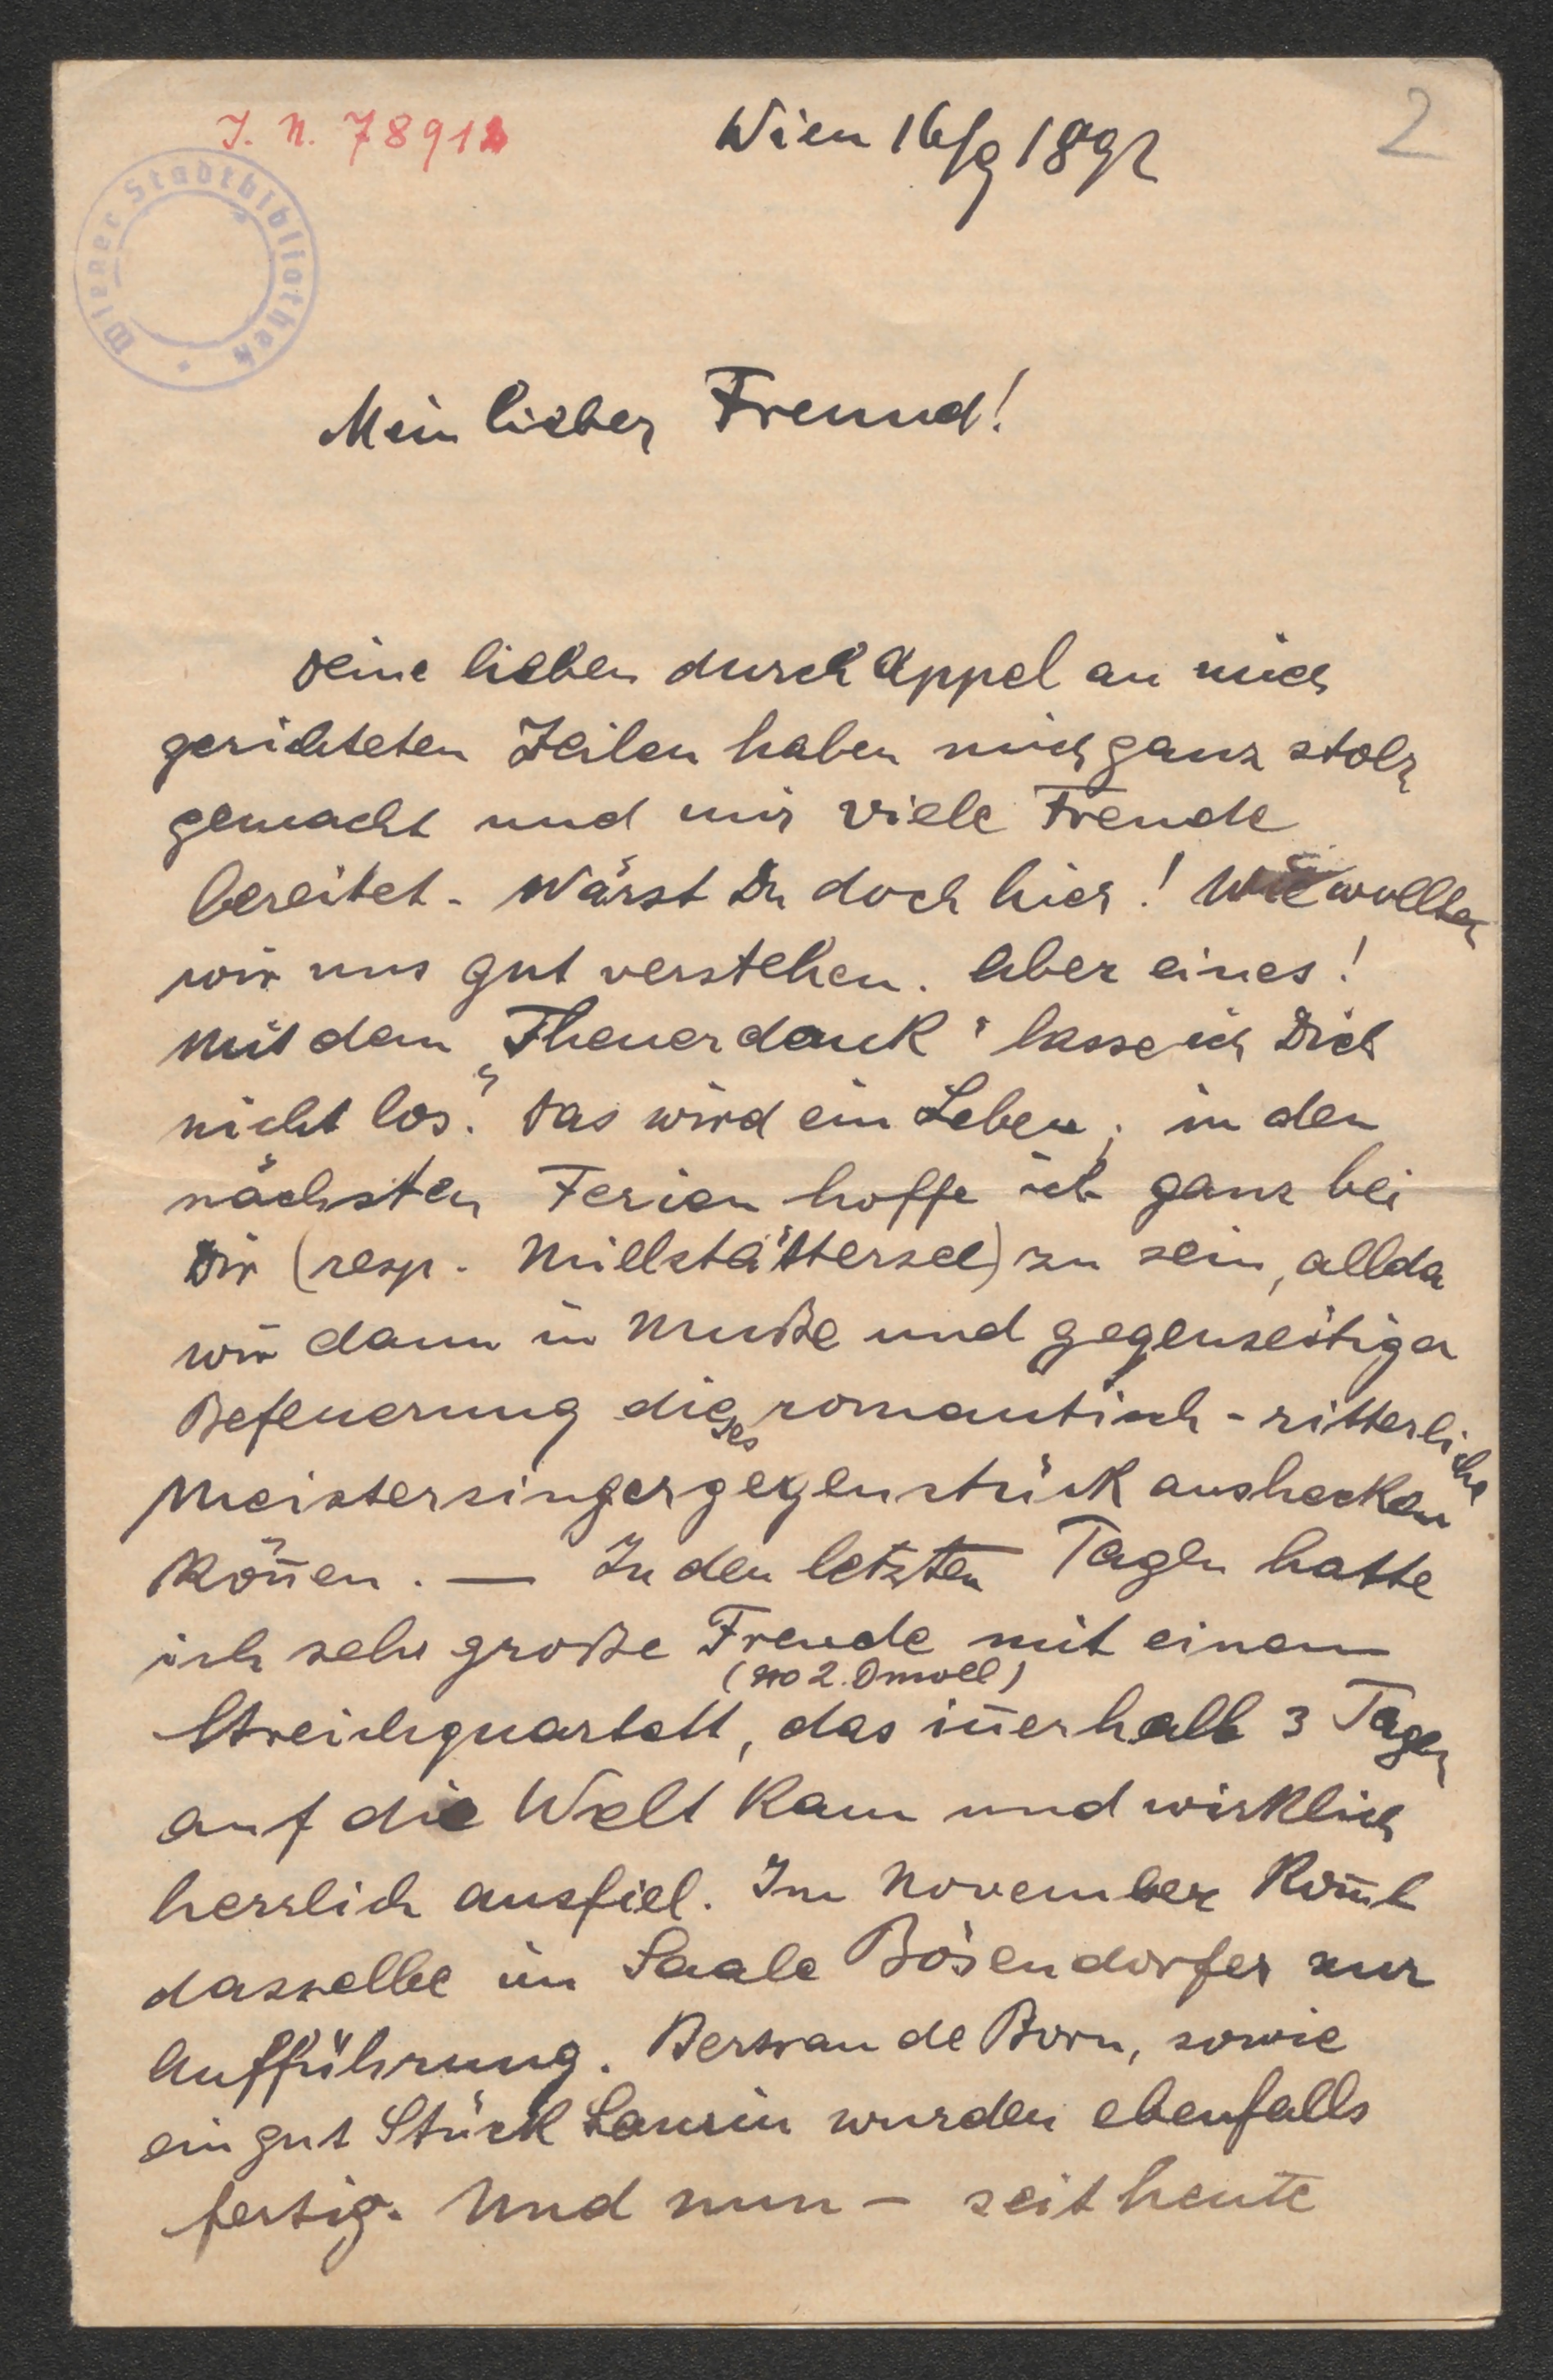 J. N. 78912
Wien 16/9 1892
2
Wiener Stadtbibliothek
Mein lieber Freund!
Deine lieben durch Appel an mich
gerichteten Zeilen haben mich ganz stolz
gemacht und mir viele Freude
bereitet. Wärst Du doch hier! Wie wollten
wir uns gut verstehen. Aber eines!
Mit dem „Theuerdank" lasse ich Dich
nicht los. Das wird ein Leben; in den
nächsten Ferien hoffe ich ganz bei
Dir (resp. Millstättersee) zu sein, allda
wir dann in Muße und gegenseitiger
Befeuerung dieses romantisch-ritterliche
Meistersingergegenstück aushecken
kön̄en. — In den letzten Tagen hatte
ich sehr große Freude mit einem
(No 2. Dmoll)
Streichquartett, das in̄erhalb 3 Tagen
auf die Welt kam und wirklich
herrlich ausfiel. Im November kom̄t
dasselbe im Saale Bösendorfer zur
Aufführung. Bertran de Born, sowie
ein gut Stück Laurin wurden ebenfalls
fertig. Und nun — seit heute